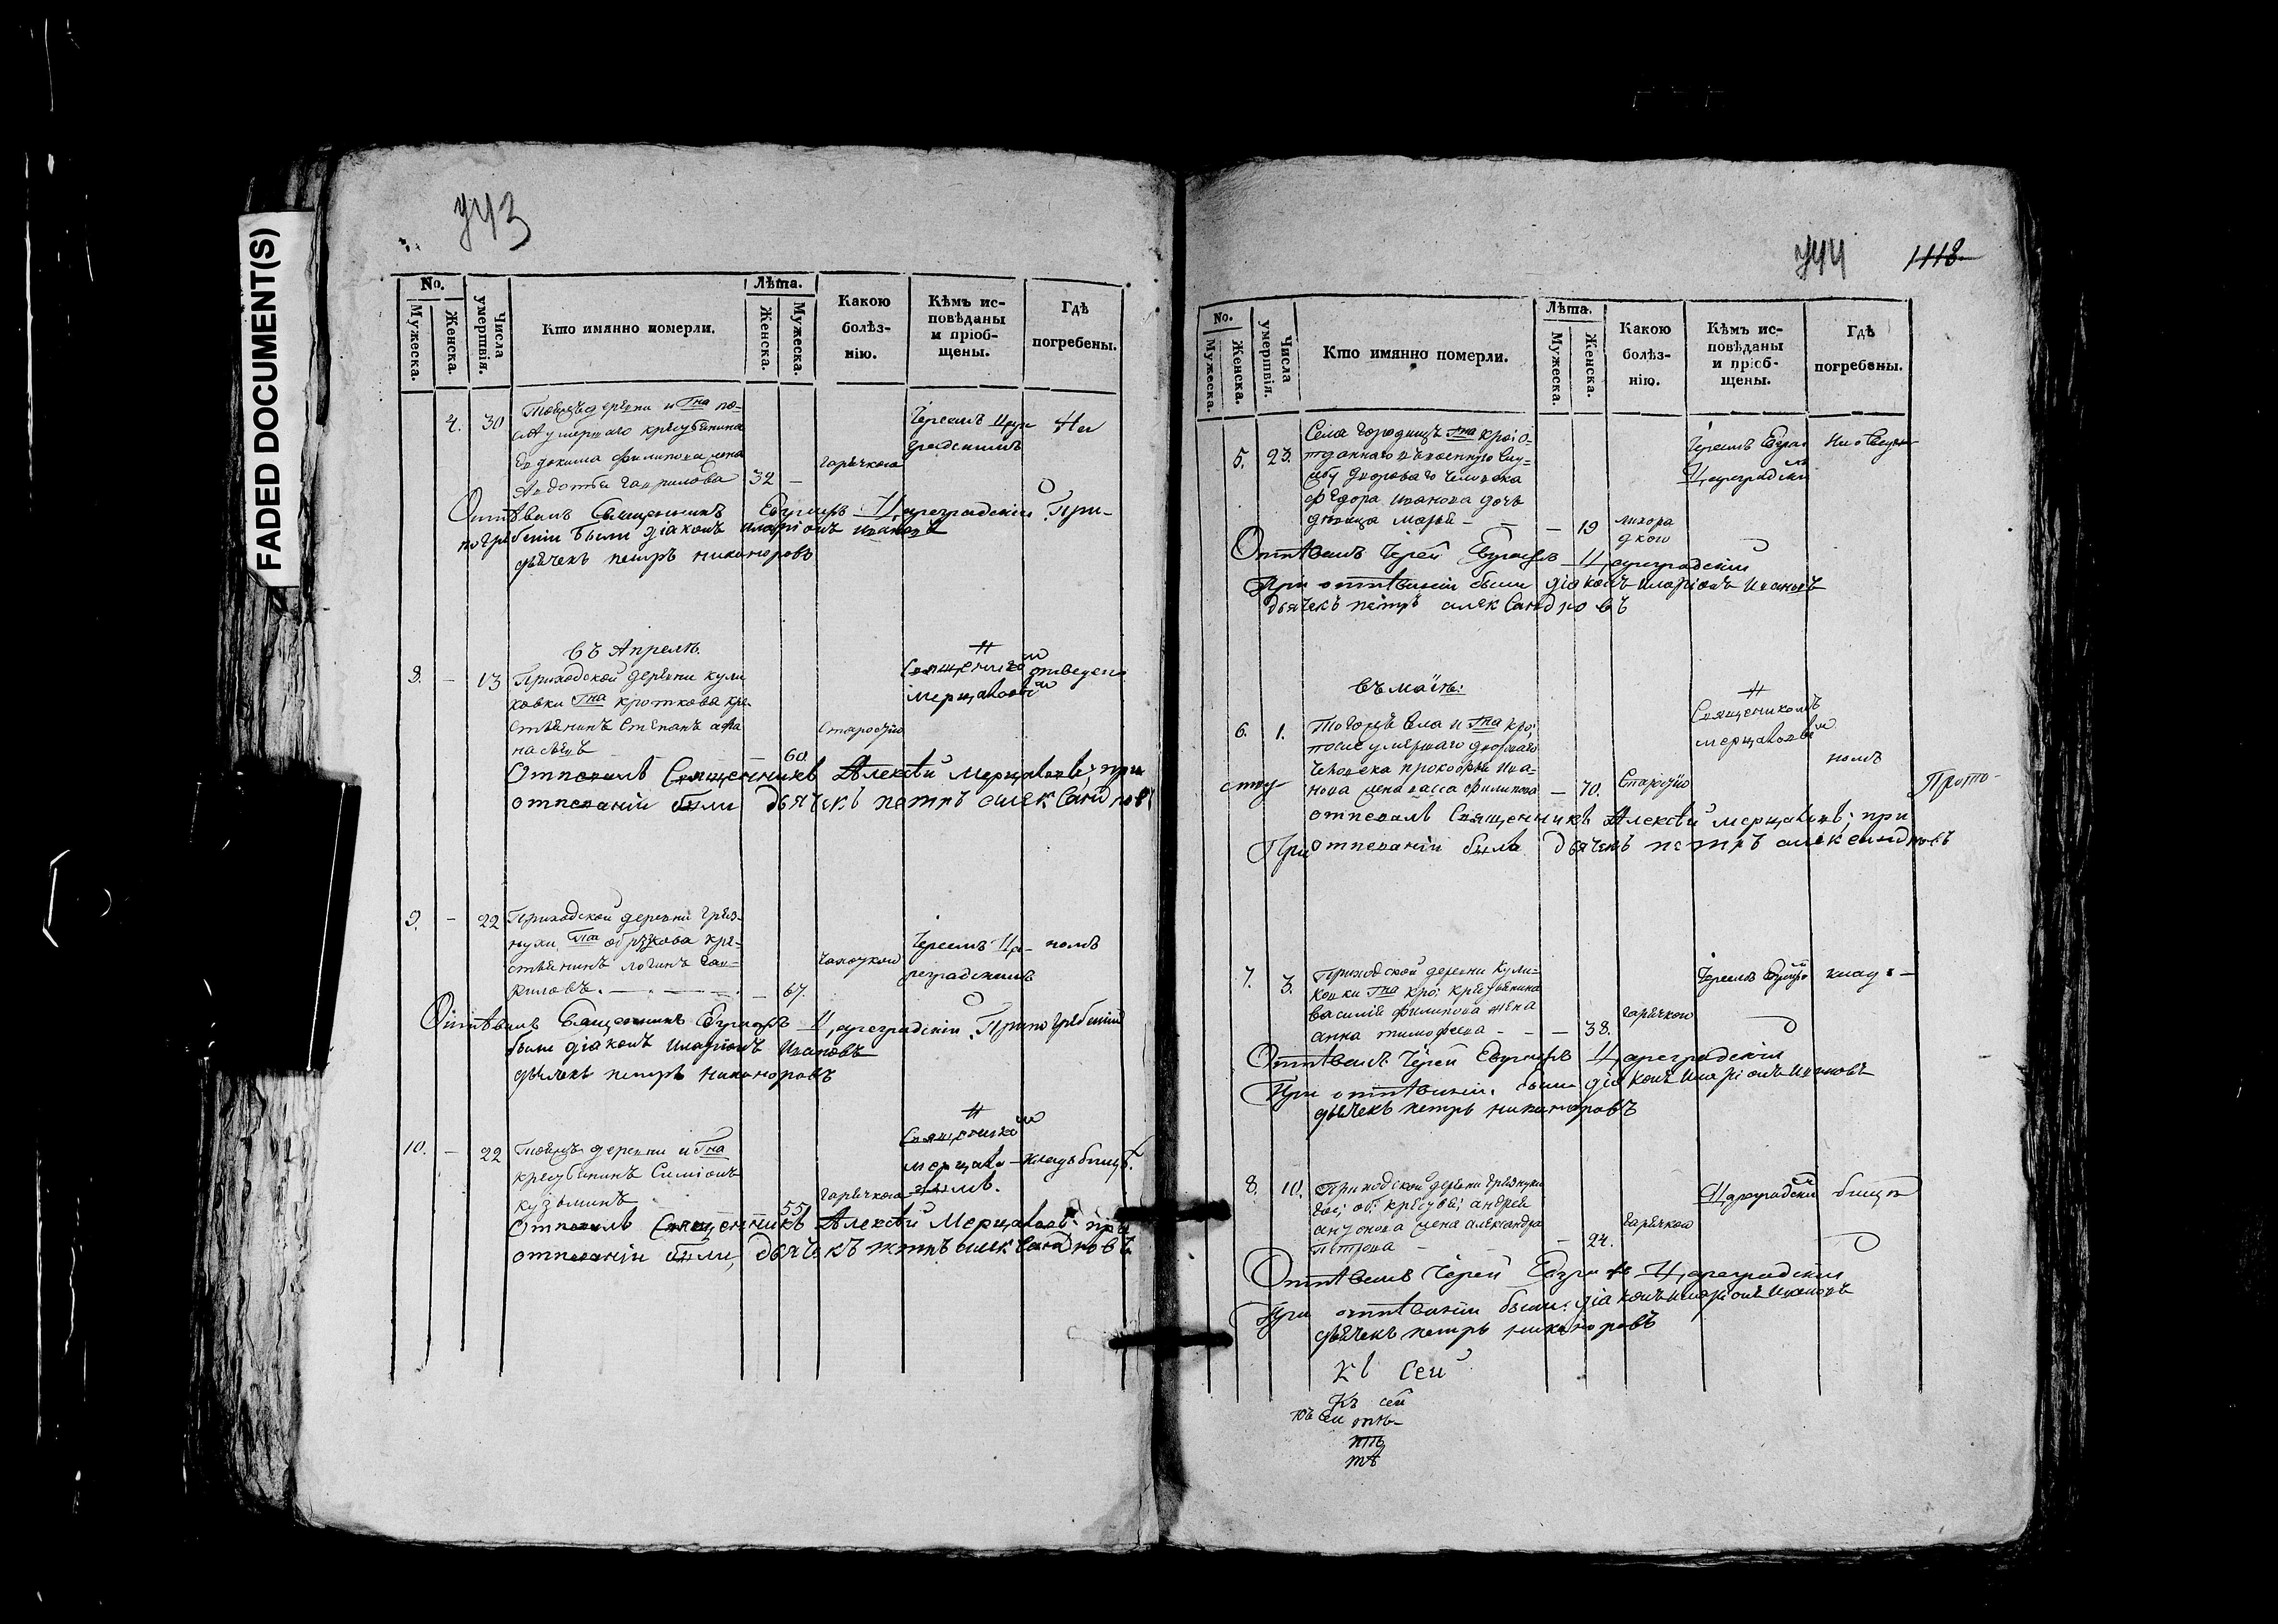 FADED DOCUMENT(S)
443
No.
Мужеска.
Женска.
Числа умертвія.
Кто имянно померли.
Лѣта.
Женска.
Мужеска.
Какою болѣз-
нію.
Кѣмъ ис-
повѣданы
и пріоб-
щены.
Гдѣ
погребены.
4. 30 деревни и Гна по-
умершаго
Евдокима Филипова жена
Авдотья Гаврилова 32 –
горячкою
Іереемъ Царе
градскимъ
На
Отпѣвалъ Священникъ Цареградскій При-
погрѣбеніи были діаконъ иларіонъ ивановъ
дьячекъ петръ никаноровъ
въ Апрелѣ.
8. – 13 Приходской деревни кули
ковки Гна кроткова кре
стьянинъ Степанъ афа
насьевъ – 60.
старостію
Священникомъ
Мерцаловымъ
отведено
Отпевалъ Священникъ Алексѣй Мерцаловъ; при
отпеваніи были дьячекъ петръ александровъ
9. – 22 Приходской деревни Гряз-
нухи Гна обрѣзкова кре-
стьянинъ логинъ Гав-
риловъ. – 67.
чахоткою
Іереемъ Ца-
реградскимъ
номъ
Отпѣвалъ Священникъ Цареградскій. При погрѣбеніи
были діаконъ Иларіонъ Ивановъ
дьячекъ петръ никаноровъ
10. – 22 деревни и Гна
крестьянинъ Симіонъ
кузьминъ 55.
горячкою
Священником
мерцало-
кладбищѣ.
Отпевалъ Священникъ Алексѣй Мерцаловъ; при
отпеваніи были, дьячекъ петръ александровъ
444 1118
No.
Мужеска.
Женска.
Числа умертвія.
Кто имянно померли.
Лѣта.
Мужеска.
Женска.
Какою
болѣз-
нію.
Кѣмъ ис-
повѣданы
и пріоб-
щены.
Гдѣ
погребены.
5. 23. Села Городищъ Гна кро: о-
тданнаго въ военную слу-
жбу двороваго человека
Федора иванова дочь
девица марья – – – 19
лихора
дкою
Іереемъ
Цареградским
Отпѣвалъ Іерей Цареградскій
При отпѣваніи были діаконъ иларіонъ Ивановъ
дьячекъ петръ александровъ
въ маіѣ:
6. 1. Тогожъ села и Гна кро;
после умершаго двороваго
человека прокофья ива-
нова жена васса филипова – 70.
Старостію
Священикомъ
мерцаловым
номъ
отпевалъ Священникъ Алексѣй мерцаловъ; при
При отпеваніи были дьячекъ петръ александровъ
7. 3. Приходской деревни Кули-
ковки Гна кро: крестьянина
василія филипова жена
анна тимофеева – – – 38.
горячкою
Іереемъ
клад: –
Отпѣвалъ Іерей Цареградскій
При отпѣваніи. были діаконъ иларіонъ ивановъ
дьячекъ петръ никаноровъ
8. 10. Приходской деревни грязнухи
андрея
антонова жена александра
Петрова – – 24.
горячкою
Цареградским
бищѣ
Отпѣвалъ Іерей Цареградскій
При отпѣваніи были: діаконъ иларіонъ ивановъ
дьячекъ петръ никаноровъ
Къ сей